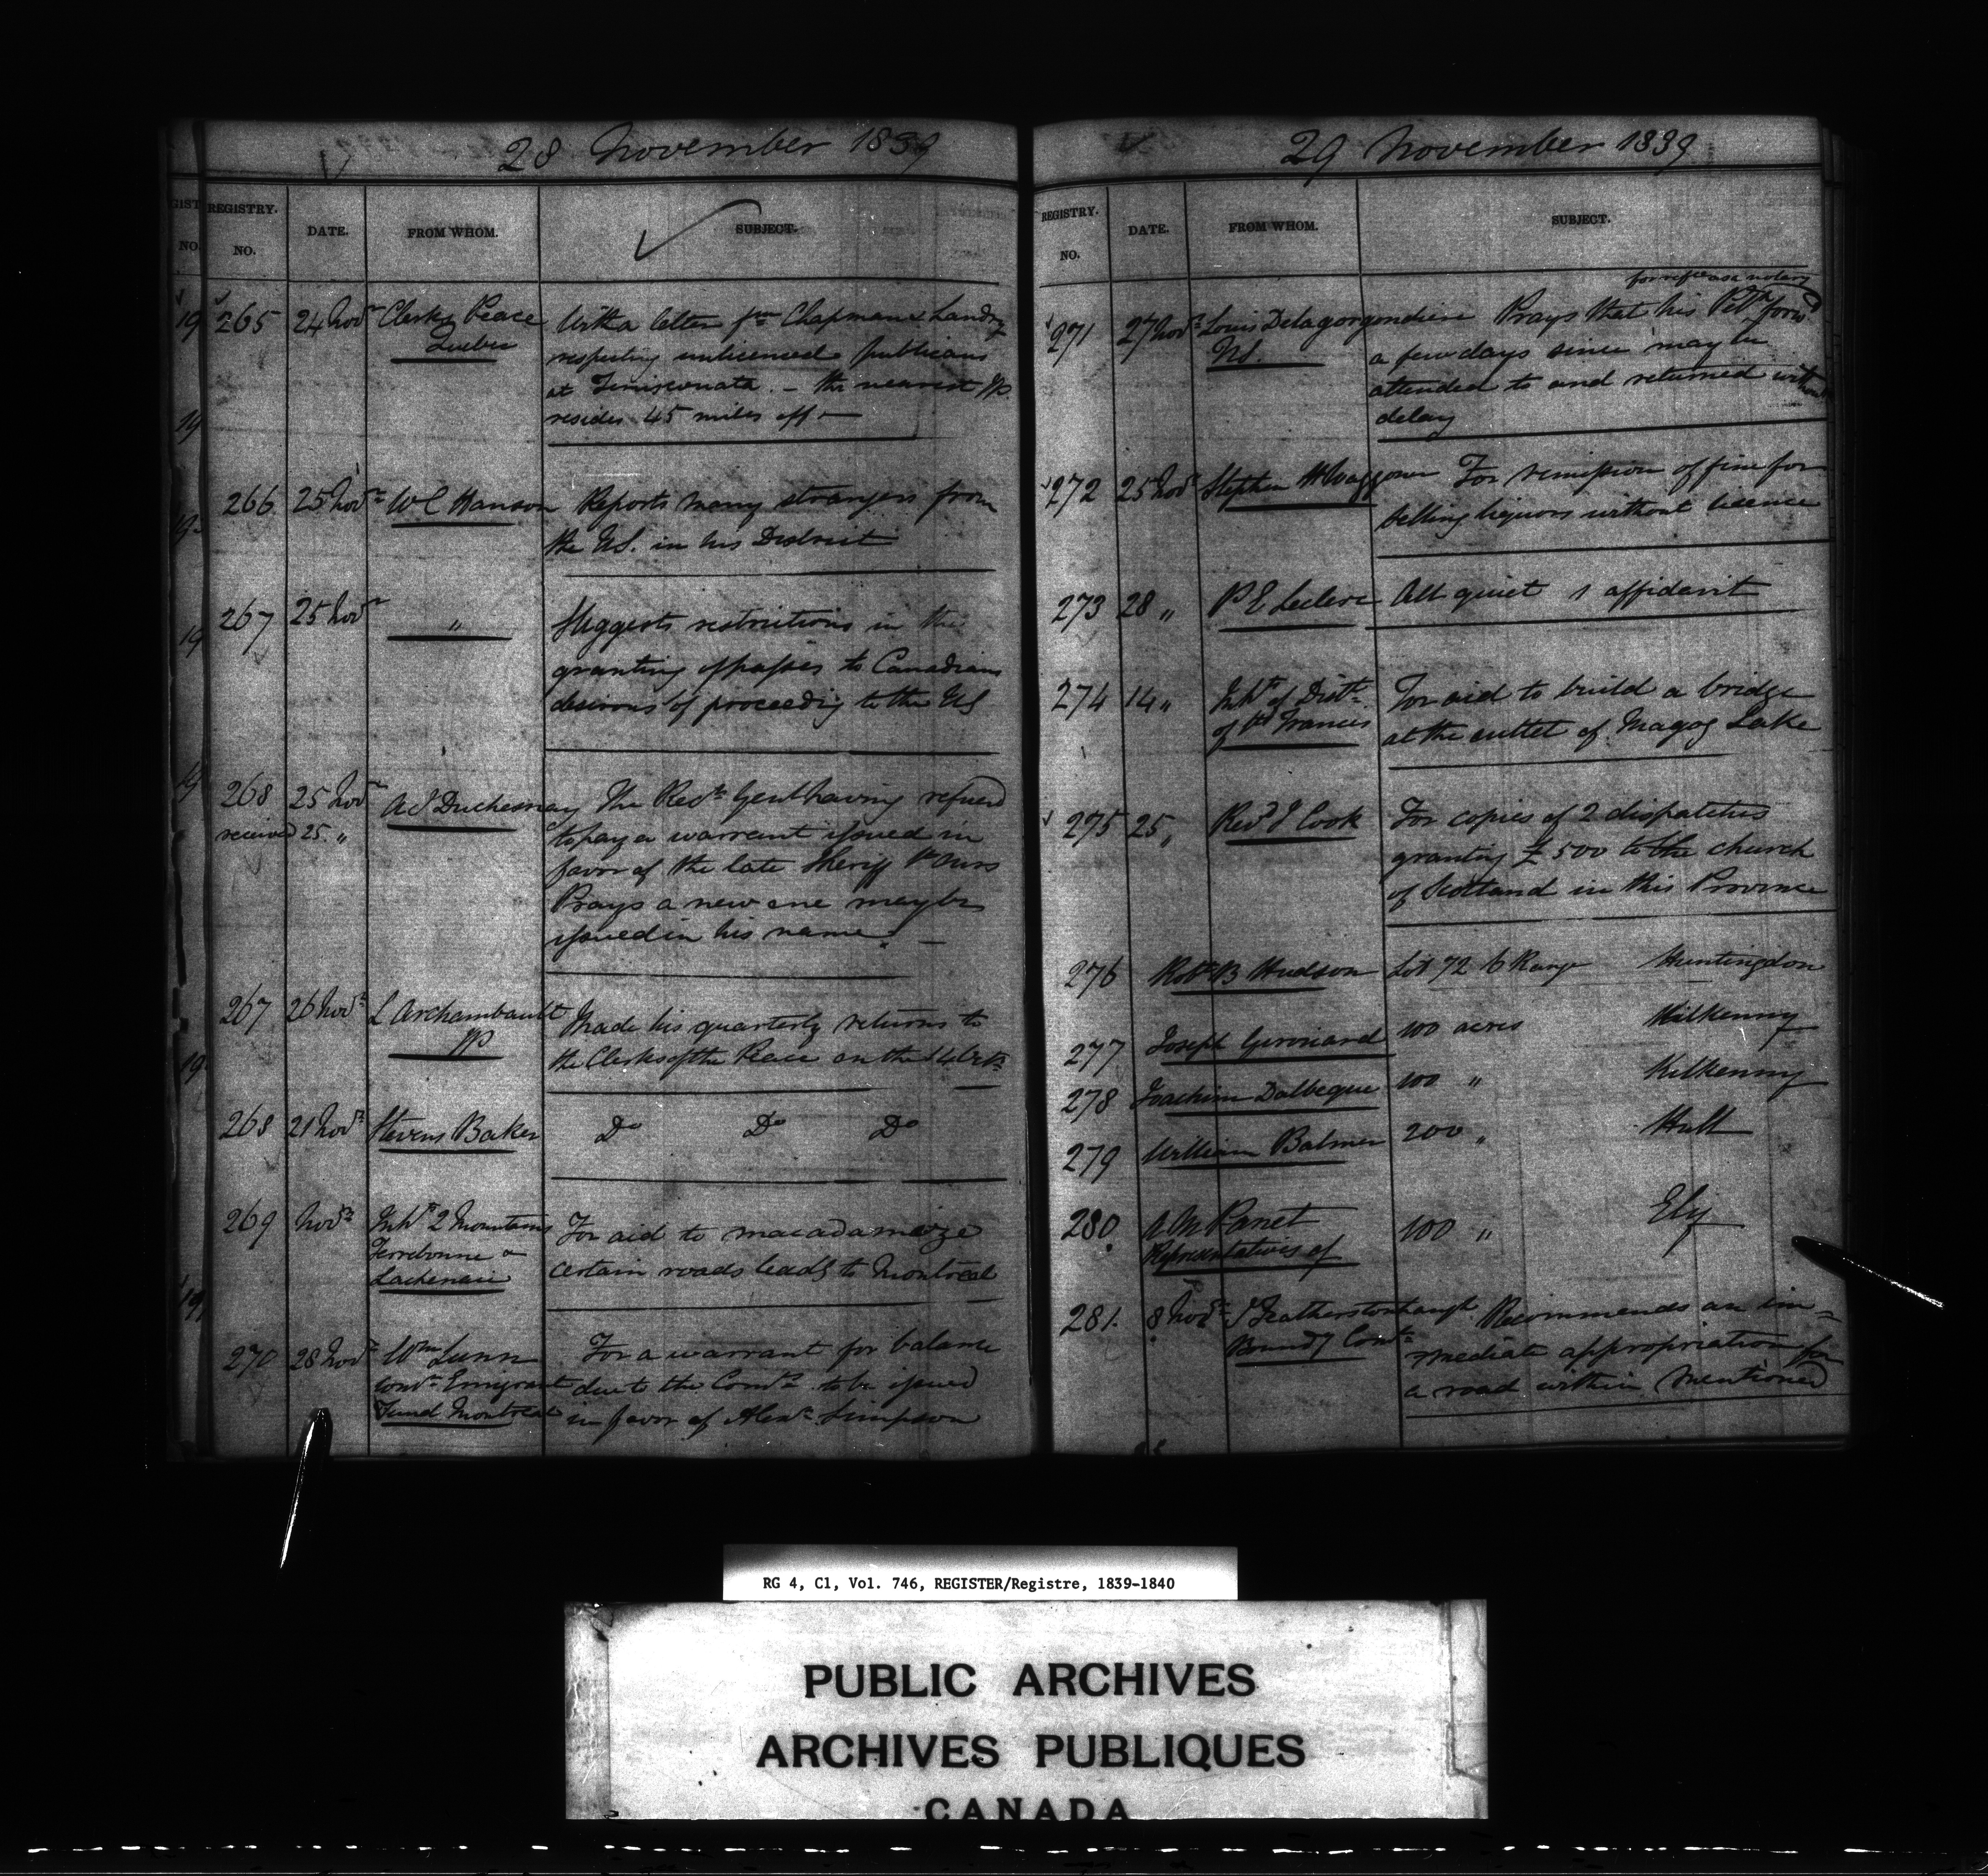 28 November 1839
REGISTRY. NO. DATE. FROM WHOM. SUBJECT.
265 24 Novr Clerks Peace With a letter fm Chapman & Landry
Quebec respecting unlicenced publicans
at Temisconata. – the nearest JP.
resides 45 miles off –
266 25 Novr W C Hanson Reports many strangers from
the U.S. in his District
267 25 Novr " Suggests restrictions in the
granting of passes to Canadians
desirous of proceedig to the US
268 25 Novr A J Duchesnay The Recr Genl having refused
received 25. " to pay a warrant issued in
favor of the late Sheriff St Ours
Prays a new one may be
issued in his name. –
267 26 Novr L Archambault Made his quarterly returns to
JP the Clerks of the Peace on the 14 Octr
268 21 Novr Stevens Baker Do Do Do
269 Novr Inhts 2 Mountains For aid to macadamize
Terrebonne & certain roads leadg to Montreal
Lachenaie
270 28 Novr Wm Lunn For a warrant for balance
Comr Emigrant due to the Comrs to be issued
Fund Montreal in favor of Alexr Simpson
29 November 1839
REGISTRY. NO. DATE. FROM WHOM. SUBJECT.
271 27 Novr Louis Delagorgendiere Prays that his Petn forwd
N.P. a few days since may be
attended to and returned without
delay
272 25 Novr Stephen Waggoner For remission of fine for
selling liquors without licence
273 28 " P E Leclere All quiet 1 affidavit
274 14 " Inhts of Distt For aid to build a bridge
of St Francis at the outlet of Magog Lake
275 25 " Revd J Cook For copies of 2 dispatches
granting £500 to the church
of Scotland in this Province
276 Robt B Hudson Lot 72 6 Range Huntingdon
277 Joseph 100 acres Kilkenny
278 Joachim Dalbeque 100 " Kilkenny
279 William Balmer 200 " Hull
280 A M Panet 100 " Ely
Representatives of
281. 8 Novr J Featherstonhaugh Recommends an im=
Boundy Comr mediate appropriation for
a road within mentioned
RG 4, C1, Vol. 746, REGISTER/Registre, 1839-1840
PUBLIC ARCHIVES
ARCHIVES PUBLIQUES
CANADA